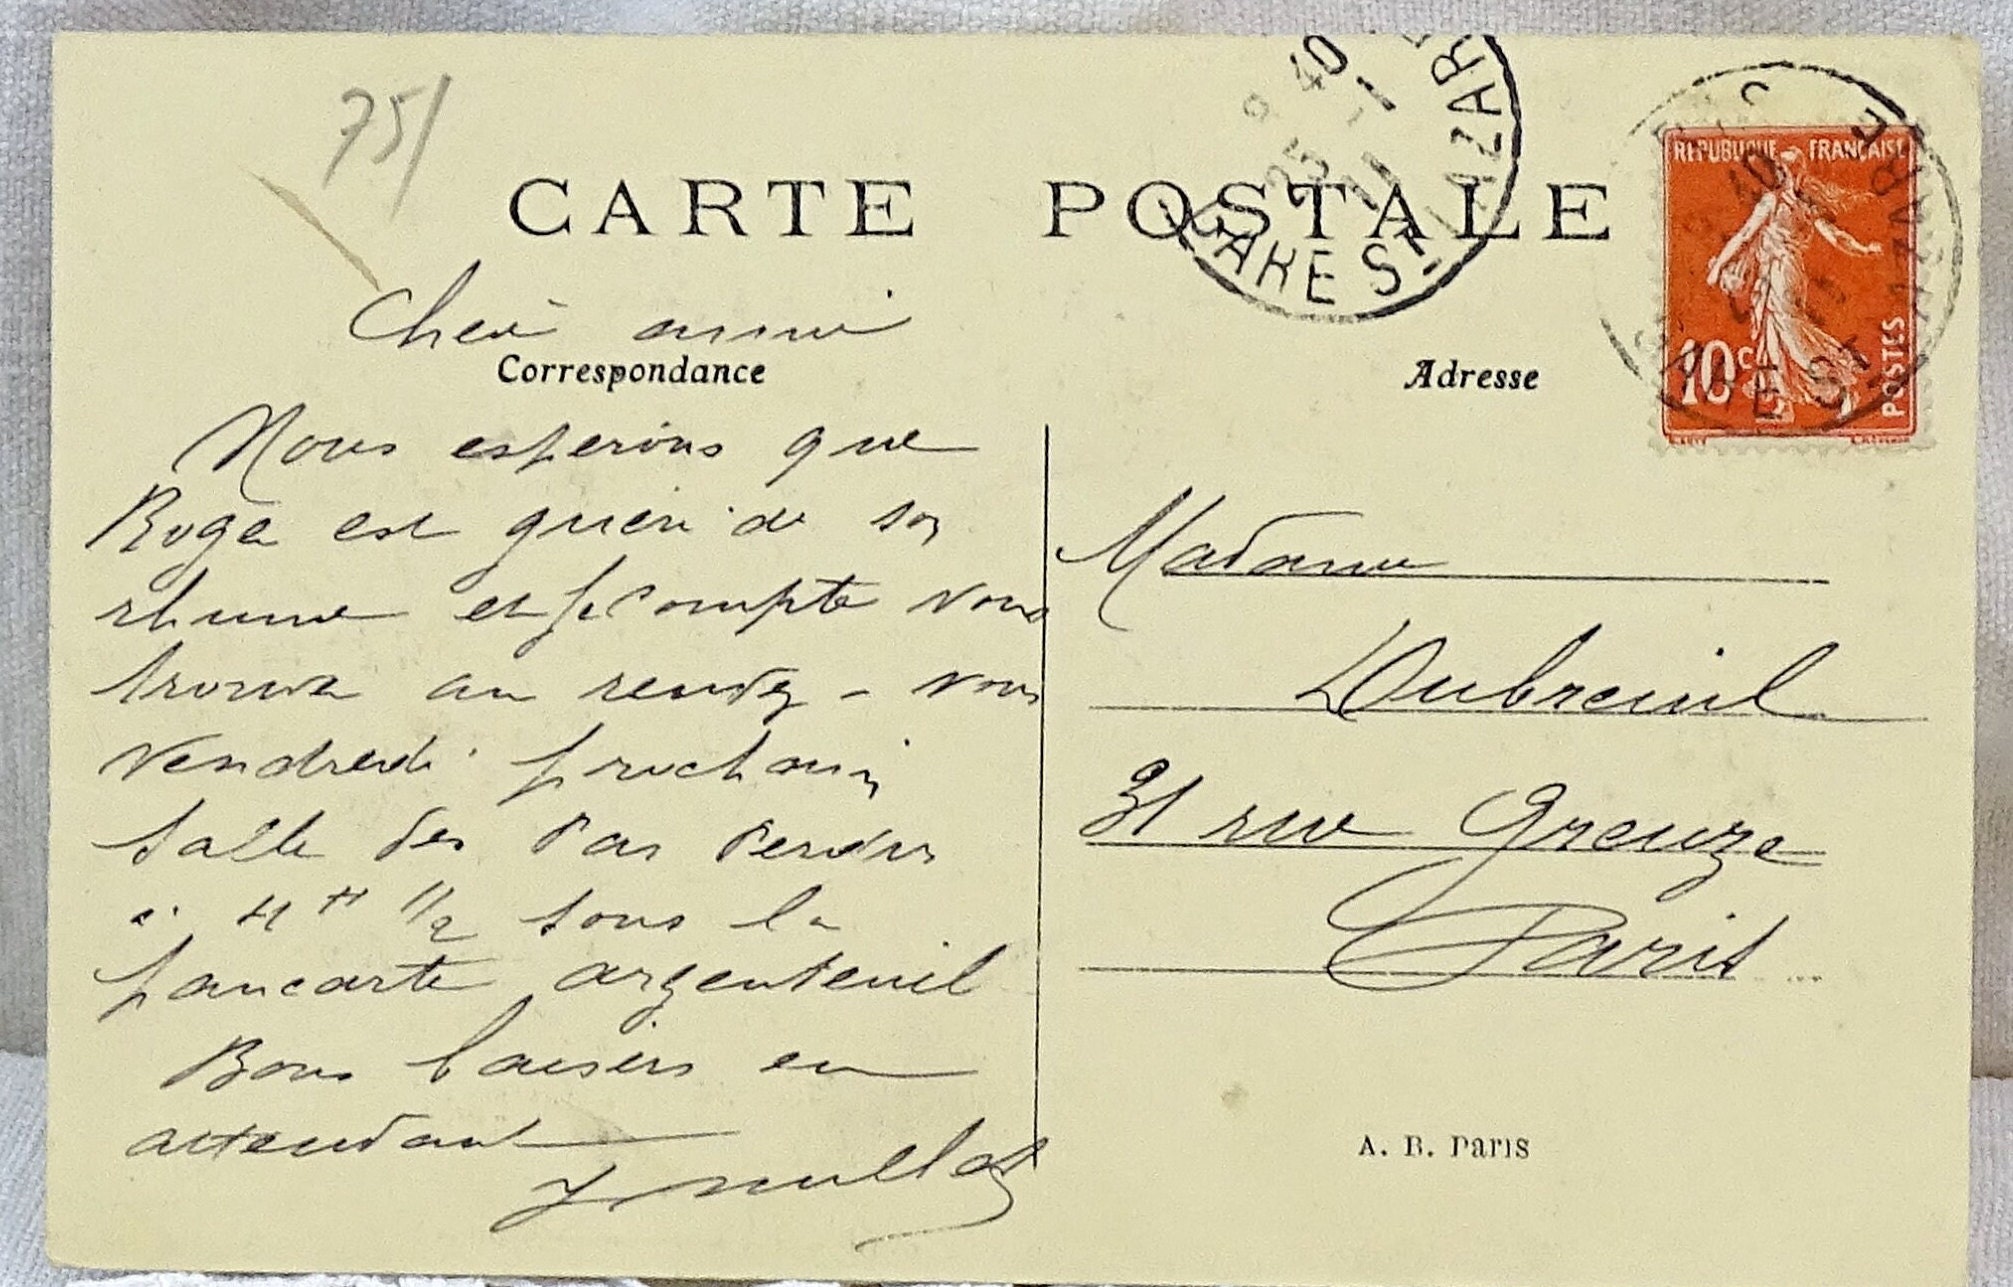 75/
CARTE POSTALE
GARE ST-LAZARE
40
25 -1
11
REPUBLIQUE FRANÇAISE
10c
POSTES
GARE ST-LAZARE
Correspondance
Adresse
Nous esperons que
Roger est guéri de son
rhume et compte vous
trouver au rendez-vous
vendredi prochain
salle des Pas Perdus
à 4H 1/2 sous la
pancarte argenteuil
Bons baisers en
attendant
Madame
Dubreuil
31 rue Greuze
Paris
A. B. Paris